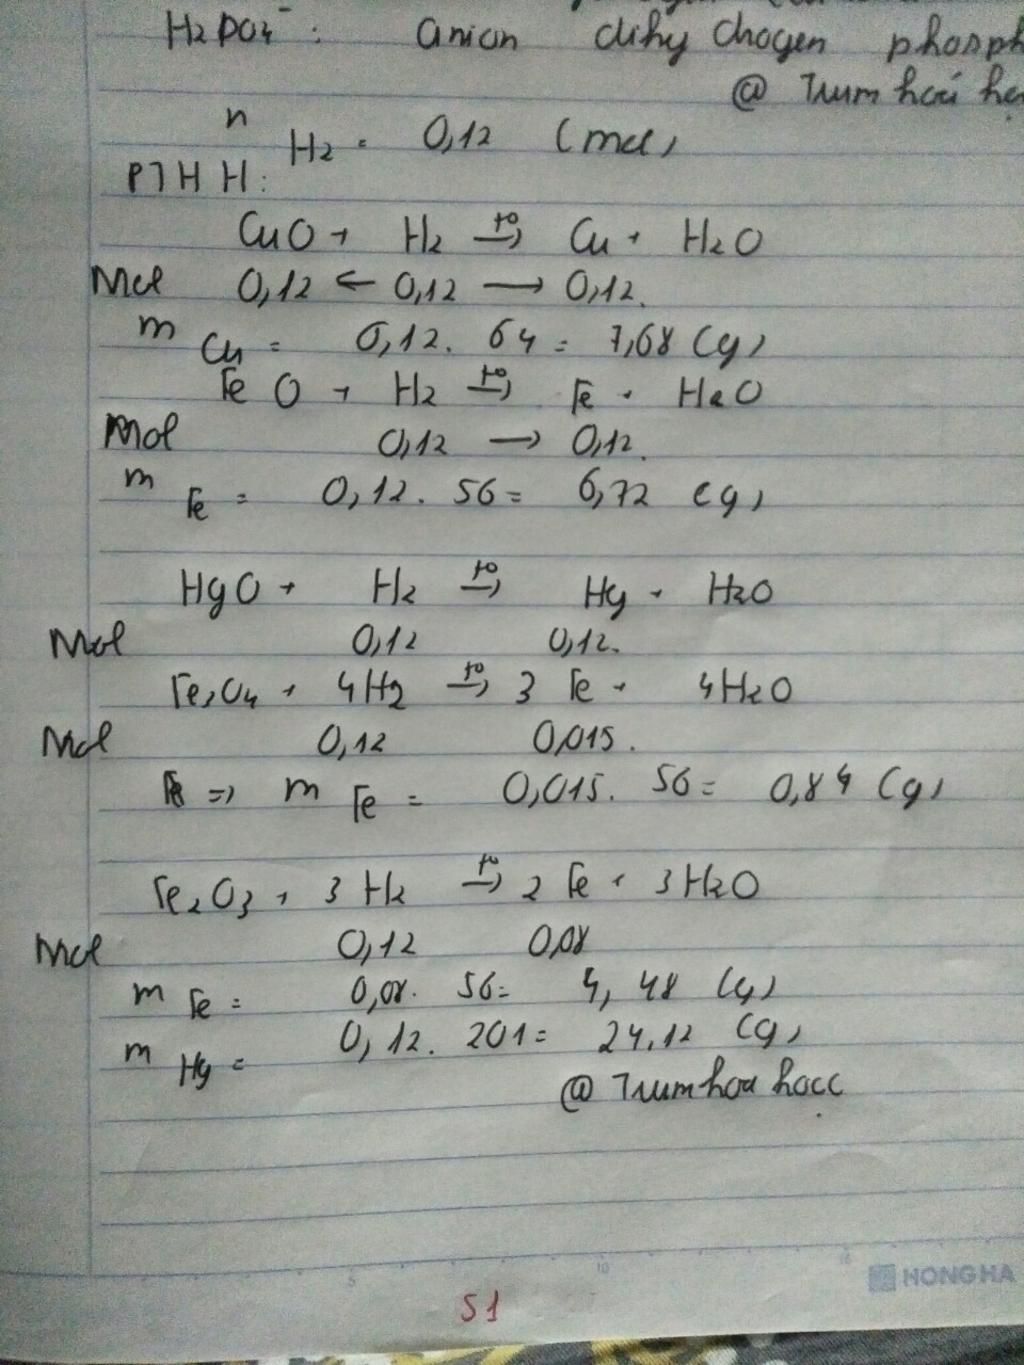 H₂PO₄⁻ : anion dihy drogen phosph
@ Trum hoá họ
n H₂ = 0,12 (mol)
PTHH:
CuO + H₂ →(t⁰) Cu + H₂O
Mol 0,12 ← 0,12 → 0,12.
m Cu = 0,12. 64 = 7,68 (g)
FeO + H₂ →(t⁰) Fe + H₂O
Mol 0,12 → 0,12.
m Fe = 0,12. 56 = 6,72 (g)
HgO + H₂ →(t⁰) Hg + H₂O
Mol 0,12 0,12.
Fe₃O₄ + 4H₂ →(t⁰) 3 Fe + 4H₂O
Mol 0,12 0,015.
=> m Fe = 0,015. 56 = 0,84 (g)
Fe₂O₃ + 3 H₂ →(t⁰) 2 Fe + 3H₂O
Mol 0,12 0,08
m Fe = 0,08. 56 = 4,48 (g)
m Hg = 0,12. 201 = 24,12 (g)
@ Trumhoa hocc
5 10 15
HONG HA
51